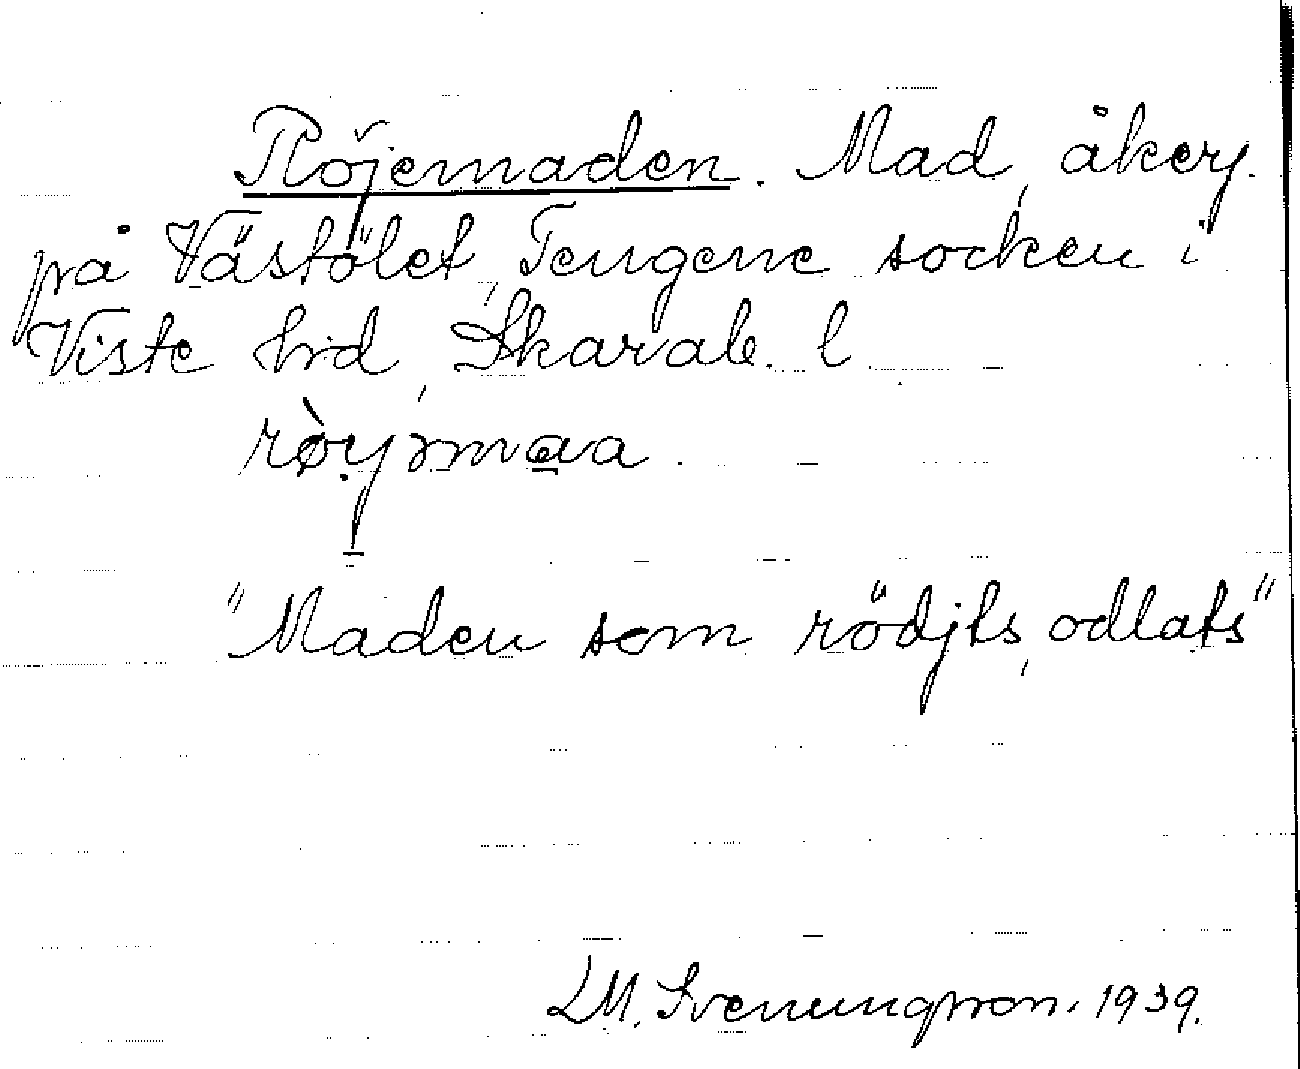 Röjemaden. Mad, åkerj.
på Västölet, Tengene socken i
Viste hrd, Skarab. l
"Maden som rödjts, odlats"
LM. Svenungsson. 1939.